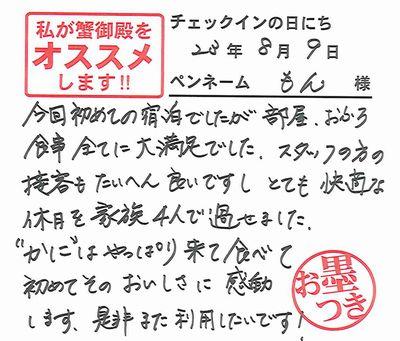 私が蟹御殿を
オススメ
します!!
チェックインの日にち
28年8月9日
ペンネーム もん 様
今回初めての宿泊でしたが部屋、おふろ
食事全てに大満足でした。スタッフの方の
接客もたいへん良いですし とても快適な
休日を家族4人で過せました。
"かに"はやっぱり来て食べて
初めてそのおいしさに感動
します、是非また利用したいです!
お墨つき